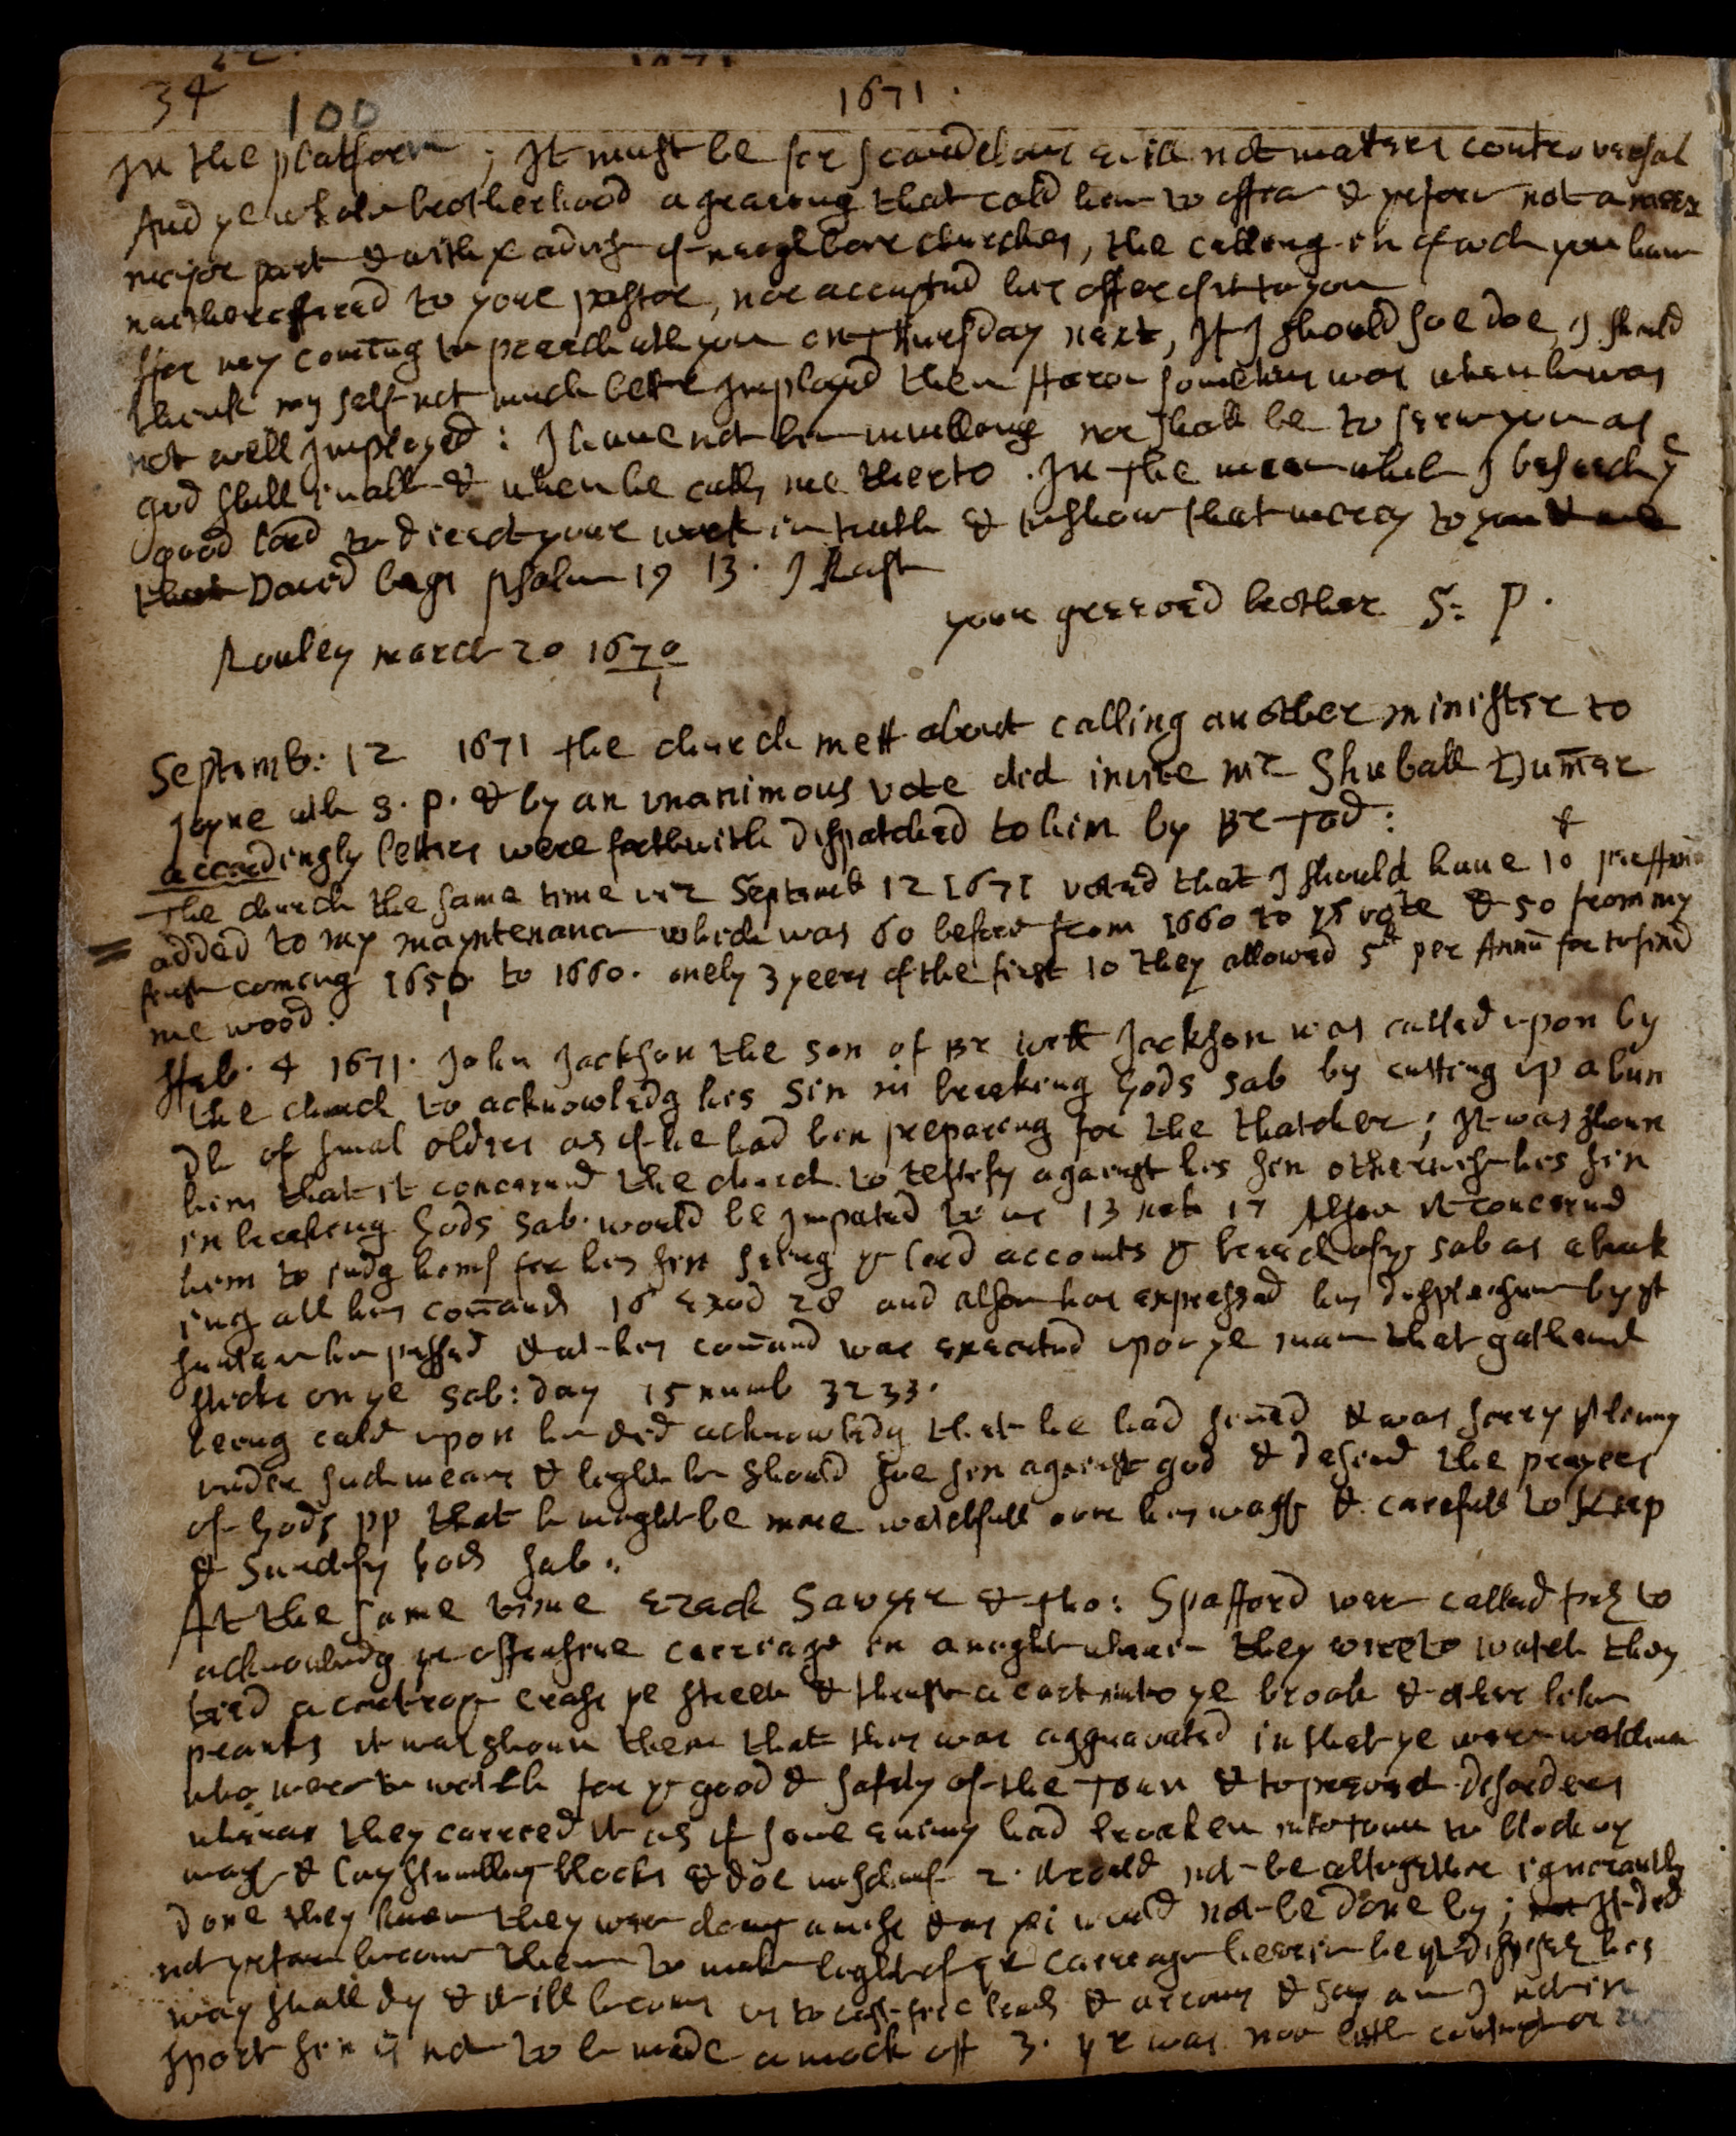 34
100
1671.
In the platform; It must be for scandelous evill not matters controversal
And ye whole brotherhood agreeing that cald him to office & not a meer
major part & with ye advise of neighbore churches, the calling in of wch you have
neither offered to youre pastor, nor accepted his offer of it to you
ffor my coming to preach with you on Thursday next, If I should soe doe, I should
think my self not much better Imployed then Haron sometimes was when he was
not well Imployed: I have not ben unwilling nor shall be to serve you as
god shall inable & when he calls me therto. In the mean while I beseech ye
good lord to direct youre work in truth & to show that mercy to you
that David begs psalm 19 13. I Rest
youre greeved brother S: P.
Rouley march 20 1670/1
Septemb: 12 1671 the church mett about calling another minister to
Joyne with S. P. & by an unanimous vote did invite mr Shuball Dum̄er
accordingly letters were forthwith dispatched to him by Br Tod:
The church the same time viz Septemb 12 1671 voted that I should have 10 £
added to my mayntenance which was 60 before from 1660 to ys vote & 50 from my
first coming 1650 to 1660. onely 3 yeers of the first 10 they allowed 5£ per Annū for to find
me wood.
ffeb. 4 1671. John Jackson the son of Br Will Jackson was called upon by
the church to acknowledg his Sin in breaking Gods Sab by cutting up a bun
dle of smal olders as if he had ben preparing for the thatcher; It was shown
him that it concerned the church to testify against his sin otherwise his sin
in breaking Gods Sab. would be Imputed to us 13 neh 17 Also it concerned
him to judg hims for his sin seing ye lord accounts ye breach of ys sab as a break
ing all his com̄ands 16 Exod 28 and also has expressed his displeasure by yt
sentence he passed & at his com̄and was executed upon ye man that gathered
sticks on ye Sab: day 15 numb 32 33.
being cald upon he did acknowledg that he had sin̄ed & was sorry yt living
under such means & light he should soe sin against god & desired the prayers
of Gods pp that he might be more watchfull over his ways & carefull to keep
& Sanctify Gods Sab:
At the same time Ezack Sawyer & Tho: Spafford were called forth to
acknowledg yr offensive carriage in a night wherein they were to watch they
tied a cart rope cross ye street & thrust a cart into ye brook & other like
pranks it was shown them that this was aggravated in that ye were watchmen
who were to watch for ye good & safety of the Town & to prevent disorders
wheras they carried it as if some enimy had broken into town to block up
ways & lay stumbling blocks & doe mischief 2. It could not be altogether ignorantly
done they knew they were doing amiss & as yei would not be done by; It did
not become them to make light of yr carriage herein he yt dispiseth his
way shall dy & it ill becoms us to cast fire brands & arrows & say am I not in
sport sin is not to be made a mock off 3. yr was noe little contempt